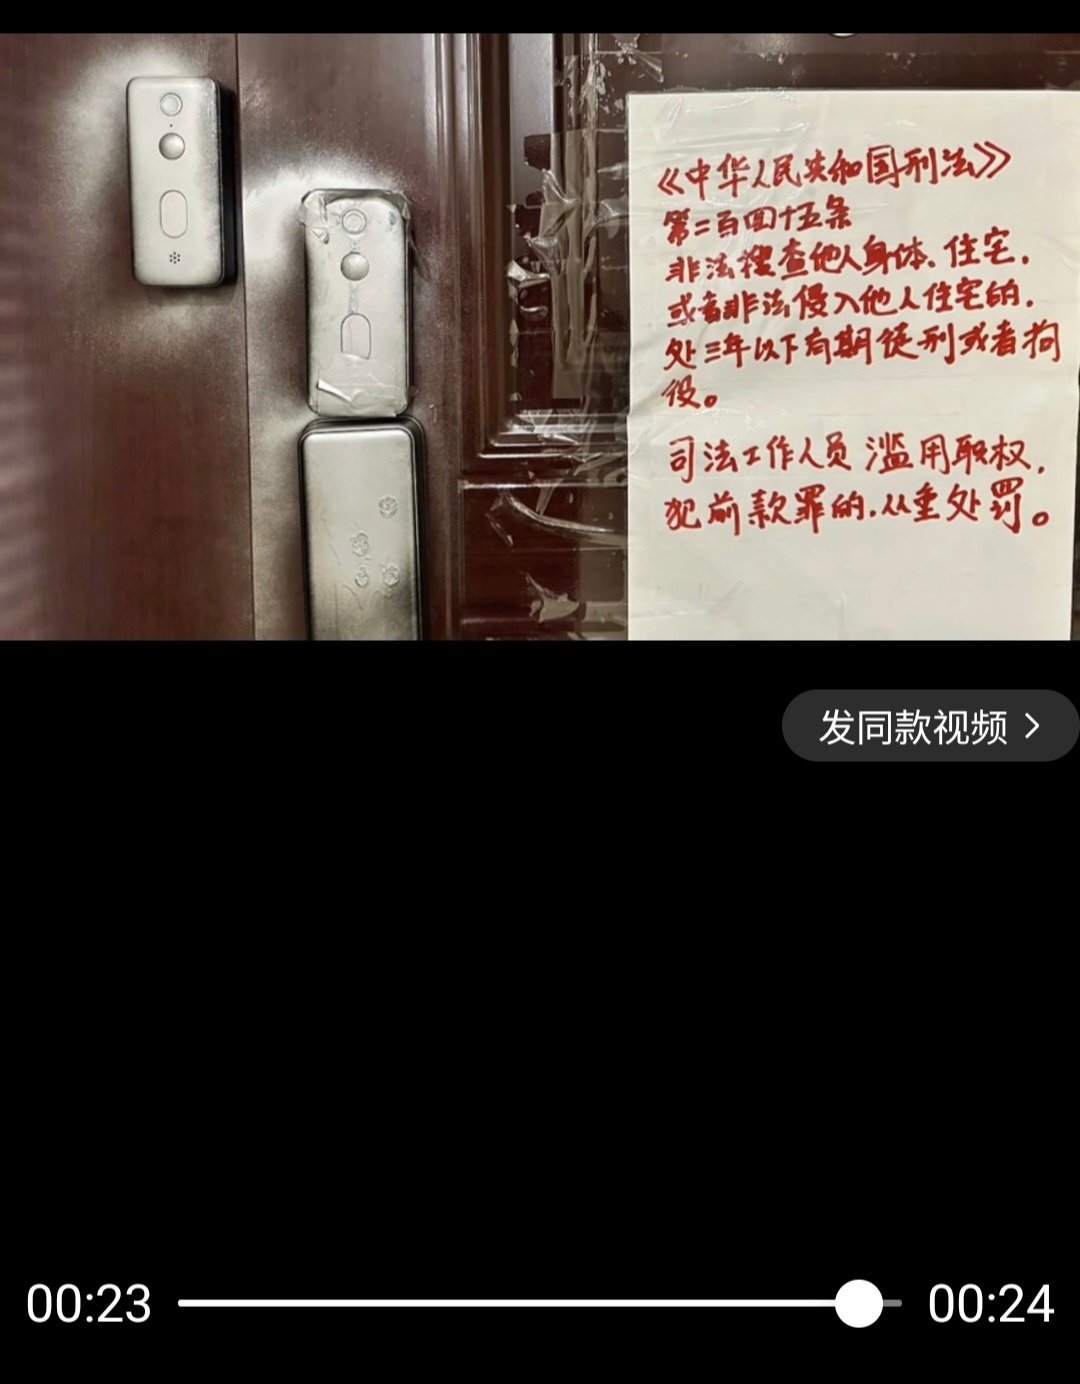 《中华人民共和国刑法》
第二百四十五条
非法搜查他人身体、住宅,
或者非法侵入他人住宅的,
处三年以下有期徒刑或者拘
役。
司法工作人员滥用职权,
犯前款罪的,从重处罚。
发同款视频 >
00:23
00:24